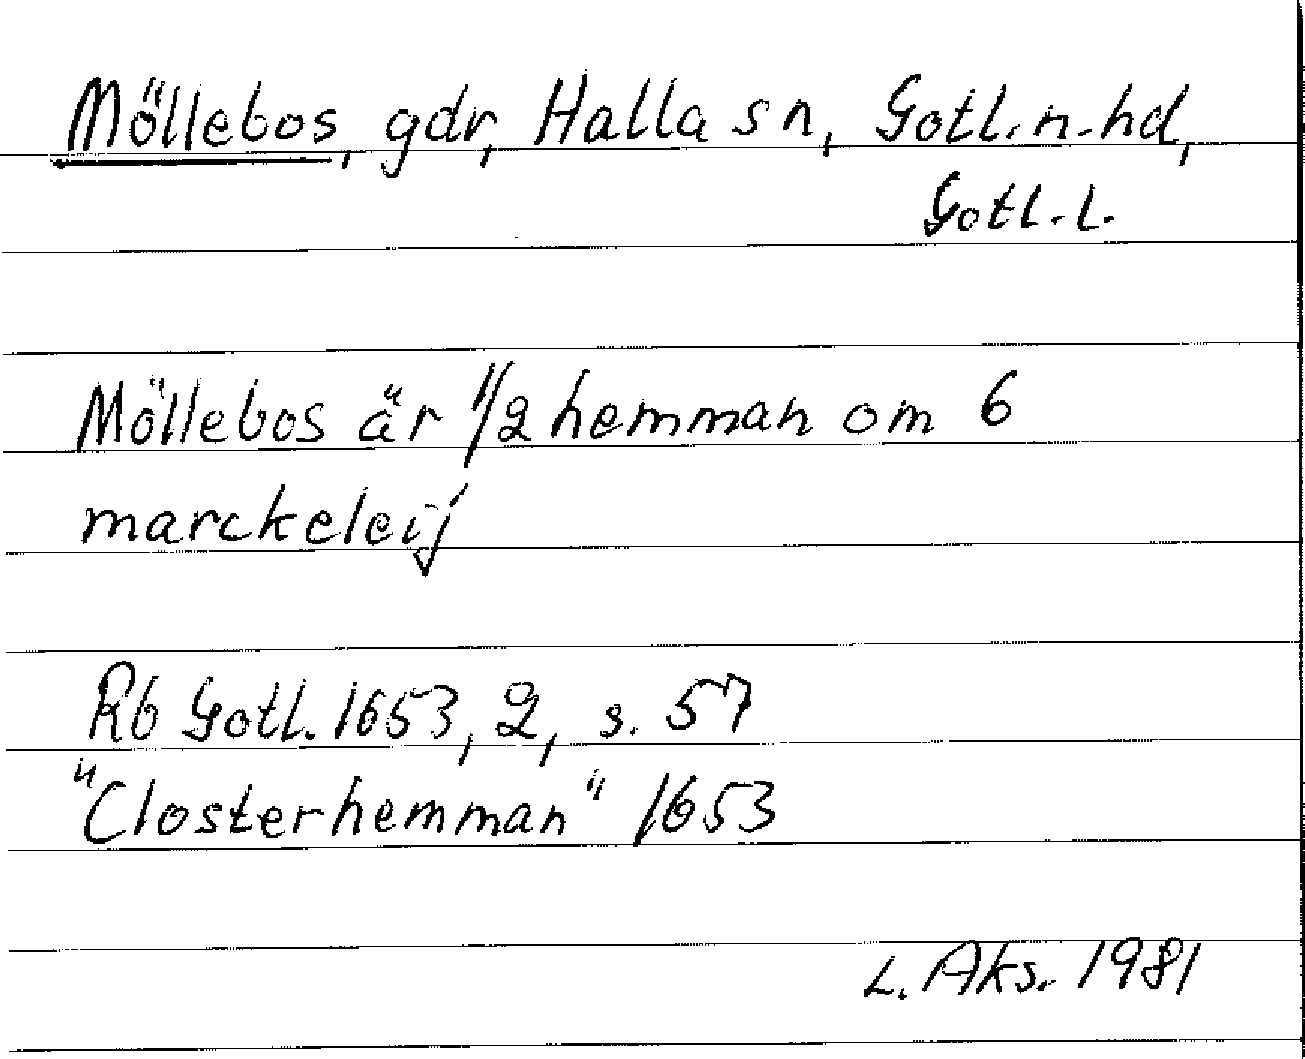 Möllebos, gdr, Halla sn, Gotl. n. hd,
Gotl. l.
Möllebos är 1/2 hemman om 6
marckeleij
Rb Gotl. 1653, 2, s. 57
"Closterhemman" 1653
L. Aks. 1981